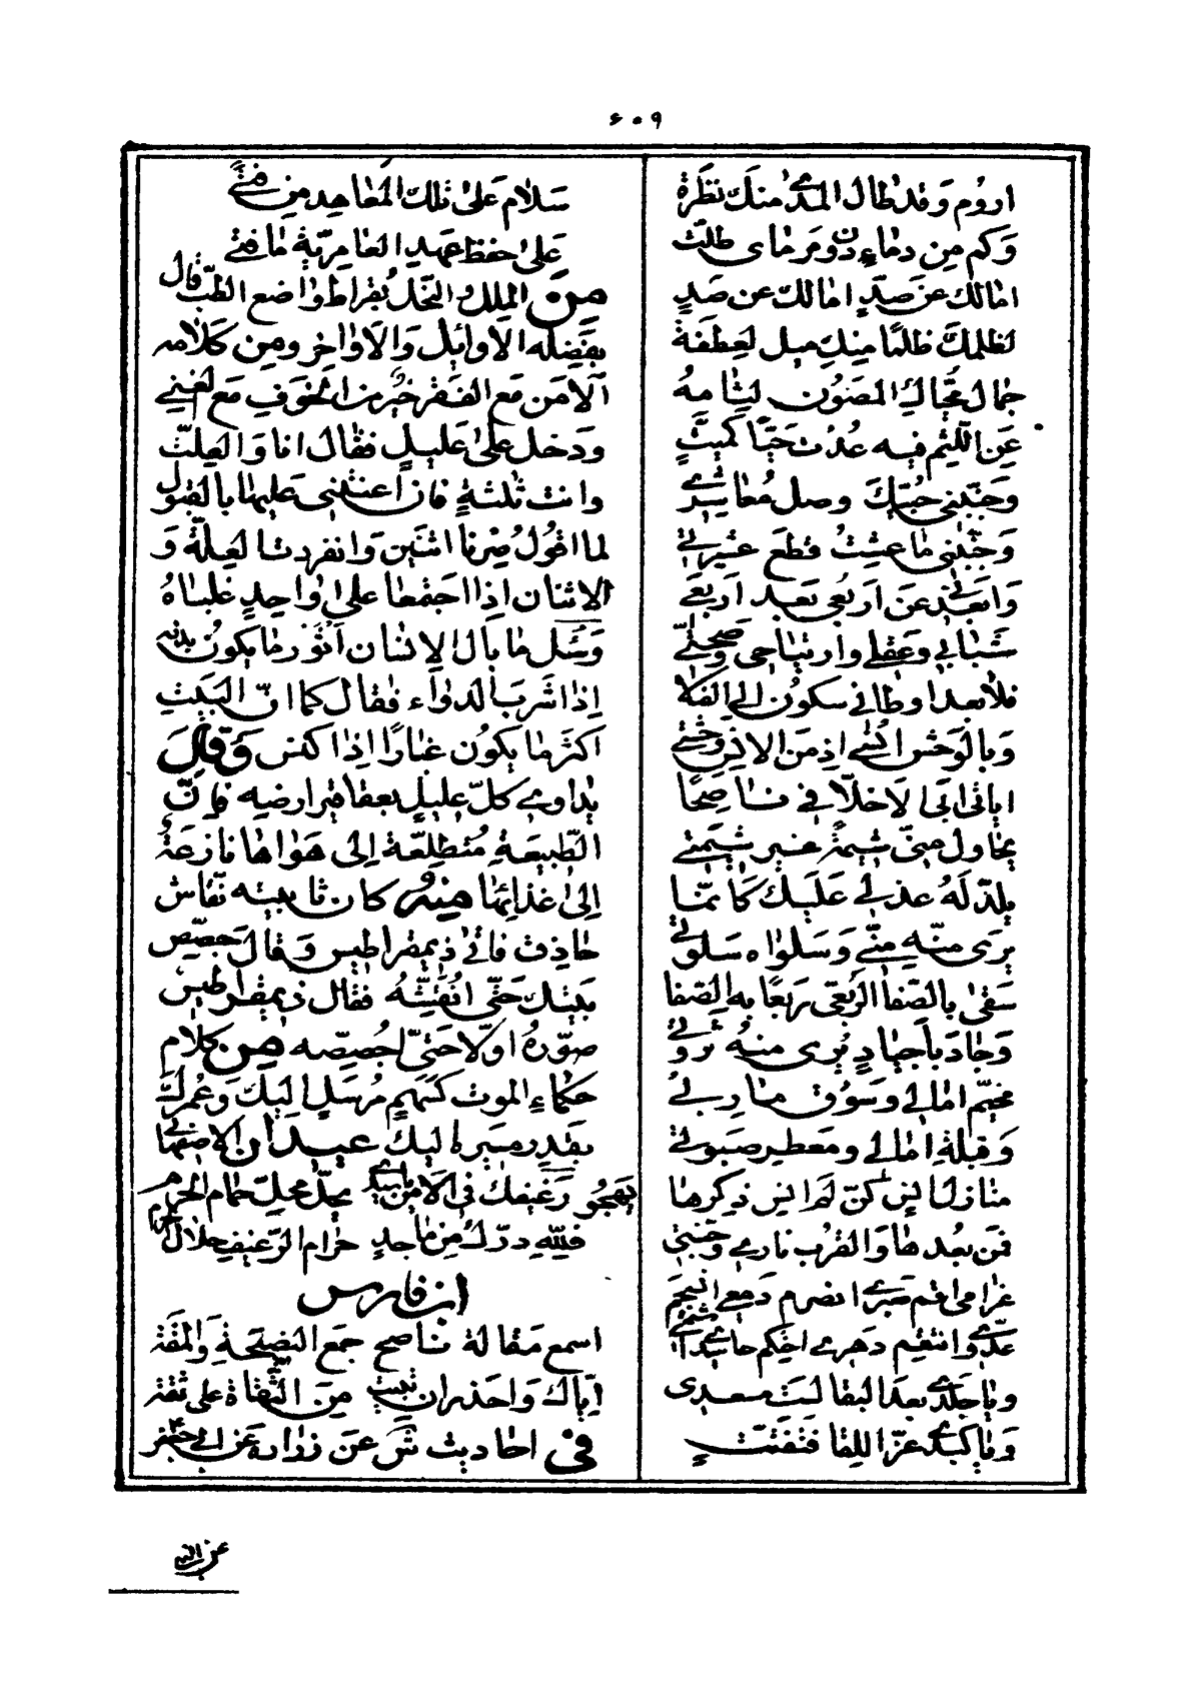 ۶۰۹
اروم وقد طال المدى منك نظرة
وكم من دماء دون مرماى طلت
امالك عن صد امالك عن صد
لظلمك ظلما منك ميل لعطفة
جمال محياك المصون لثامه
عن اللثم فيه عدت حيا كميت
وجنبنى حبيك وصل معاشرى
وحببنى ما عشت قطع عشيرتى
وابعدنى عن اربعى بعد اربع
شبابى وعقلى وارتياحى وصحتى
فلى بعد اوطانى سكون الى الفلا
وبالوحش انسى اذ من الانس وحشتى
ابانى ابى لا خلافى ناصحا
يحاول منى شيمة غير شيمتى
يلذ له عذلى عليك كانما
يرى منه منى وسلواه سلوتى
سقى بالصفا الربعى ربعا به الصفا
وجاد باجياد ثرى منه ثروتى
مخيم امالى وسوق مآربى
وقبلة امالى وموطن صبوتى
منازل انس كن لم انس ذكرها
فمن بعدها والقرب نارى وجنتى
غرامى اقم صبرى انصرم دمعى انسجم
عدوى انتقم دهرى احتكم حاسدى اشمت
ويا جلدى بعد البقا لست مسعدى
ويا كبدى عز اللقا فتفتت
سلام على تلك المعاهد من فتى
على حفظ عهد العامرية ما فتى
من الملل والنحل بقراط واضع الطب قال
بفضله الاوائل والاواخر ومن كلامه
الامن مع الفقر خير من الخوف مع الغنى
ودخل على عليل فقال انا والعلة
وانت ثلثة فان اعنتنى عليها بالقبول
لما اقول صرنا اثنين وانفردت العلة و
الاثنان اذا اجتمعا على واحد غلباه
وسئل ما بال الانسان اثور ما يكون بدنه
اذا شرب الدواء فقال كما ان البيت
اكثر ما يكون غبارا اذا كنس وقال
يداوى كل عليل بعقاقير ارضه فان
الطبيعة متطلعة الى هواها نازعة
الى غذائها ومنه كان ثا بيته نقاش
حاذق فاتى ذيمقراطيس وقال جصص
بيتك حتى انقشه فقال ذيمقراطيس
صوره اولا حتى اجصصه من كلام
حكماء الموت كسهم مرسل اليك وعمرك
بقدر مسيره اليك عبدان الاصفهانى
يهجو رغيفك فى الامن يا سيدى يحل محل حمام الحرم
فلله درك من ماجد حرام الرغيف حلال الحرم
ابن فارس
اسمع مقالة ناصح جمع النصيحة والمقة
اياك واحذر ان تبيت من الثقاة على ثقة
فى احاديث عن زرارة عن ابى جعفر
عن النبى